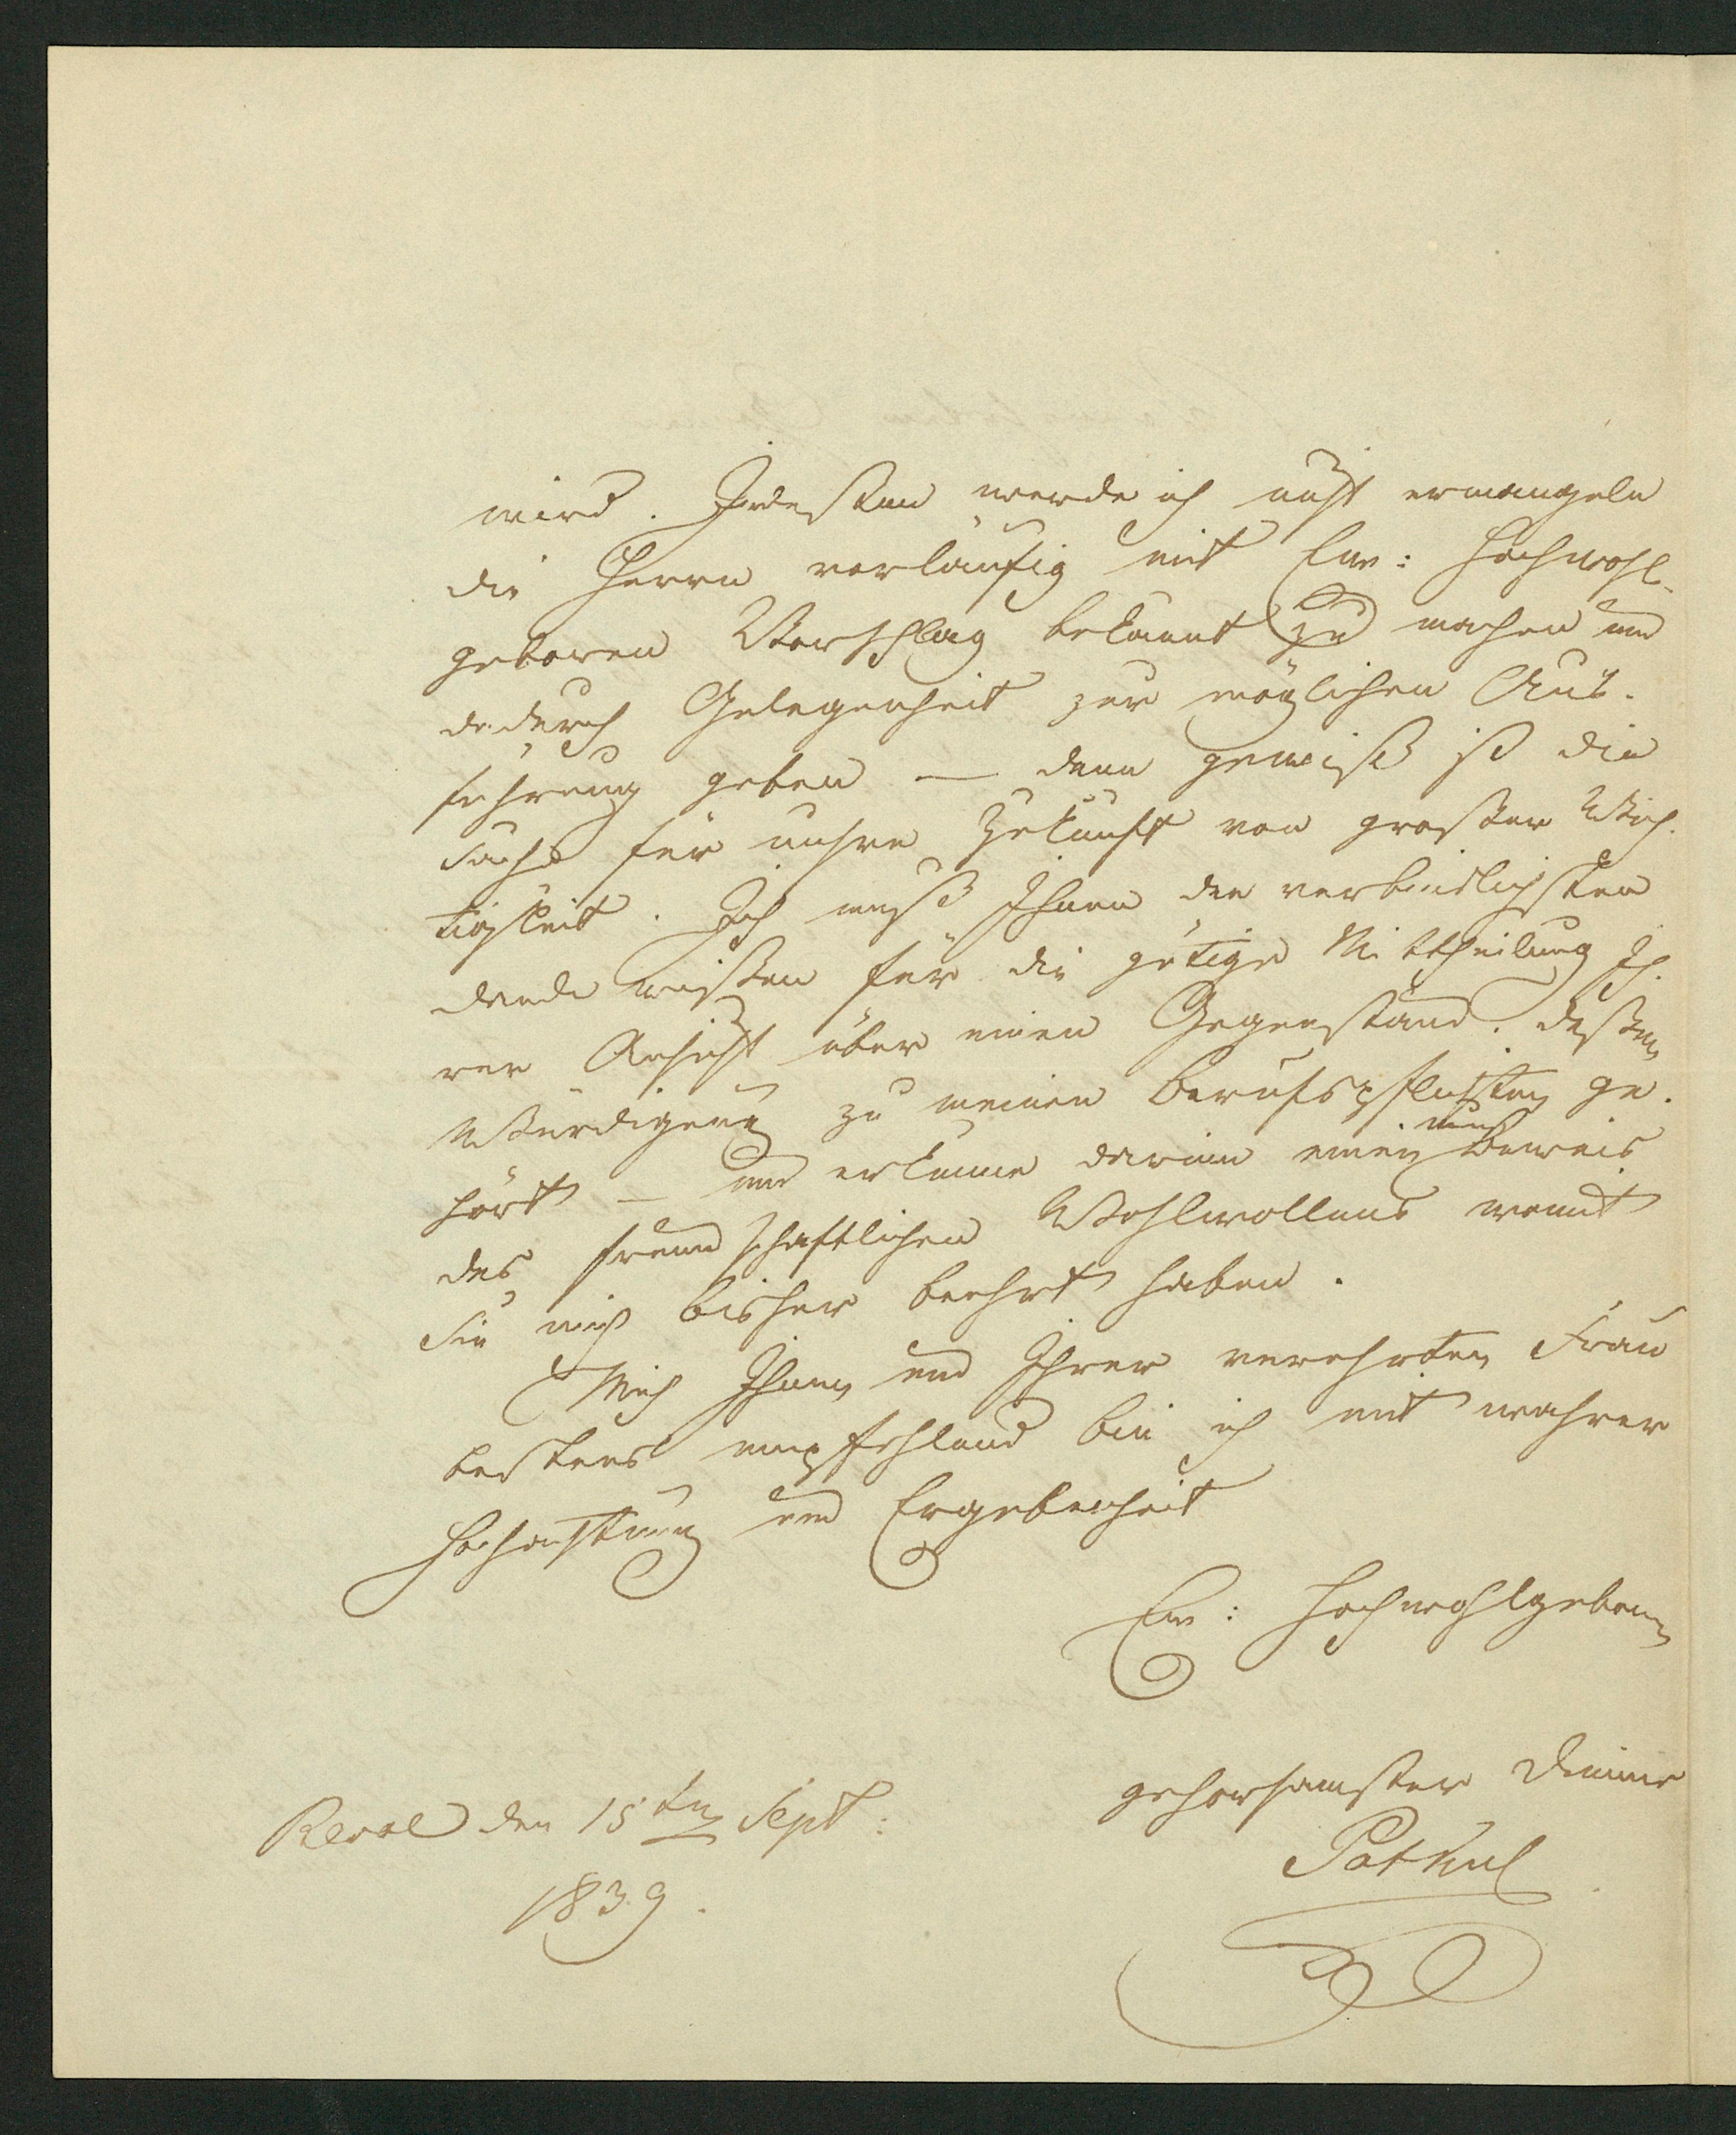 wird. Indessen werde ich nicht ermangeln
die Herrn vorläufig mit Ew: Hochwohl-
geboren Vorschlag bekannt zu machen und
dadurch Gelegenheit zur möglichen Aus-
führung geben — denn gewiß ist die
Sache für unsre Zukunft von großer Wich-
tigkeit. Ich muß Ihnen den verbindlichsten
Dank wissen für die gütige Mittheilung Ih-
rer Ansicht über einen Gegenstand, dessen
Würdigung zu meinen Berufspflichten ge-
hört — und erkenne darinn einen neuen Beweis
des freundschaftlichen Wohlwollens womit
Sie mich bisher beehrt haben.
Mich Ihnen und Ihrer verehrten Frau
bestens empfehlend bin ich mit wahrer
Hochachtung und Ergebenheit
Ew: Hochwohlgeboren
gehorsamster Diener
Patkul
Reval den 15ten Sept:
1839.